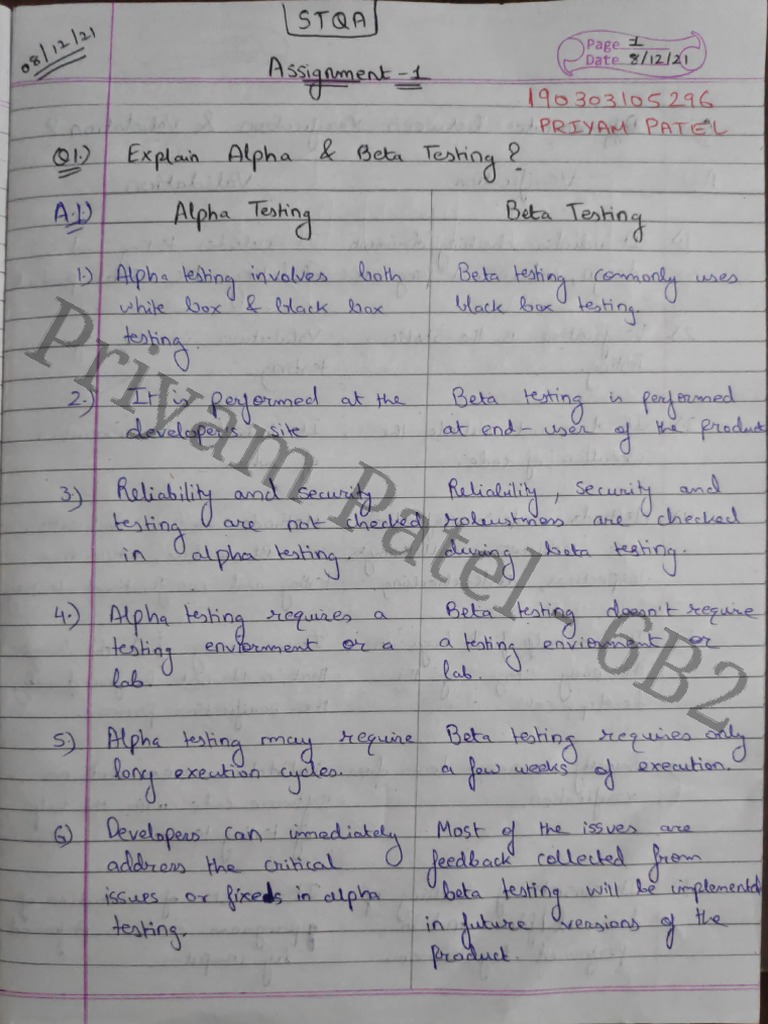 STQA
08/12/21
Page 1
Date 8/12/21
Assignment-1
190303105296
PRIYAM PATEL
Q1.) Explain Alpha & Beta Testing?
A.1.) Alpha Testing
Beta Testing
1.) Alpha testing involves both
white box & black box
testing.
Beta testing commonly uses
black box testing.
2.) It is performed at the
developer's site
Beta testing is performed
at end-user of the product
3.) Reliability and security
testing are not checked
in alpha testing.
Reliability, security and
robustness are checked
during beta testing.
4.) Alpha testing requires a
testing enviorment or a
lab.
Beta testing doesn't require
a testing enviorment or
lab.
5.) Alpha testing may require
long exection cycles.
Beta testing requires only
a few weeks of execution.
6) Developers can immediately
address the critical
issues or fixeds in alpha
testing.
Most of the issues are
feedback collected from
beta testing will be implementd
in future versions of the
product.
Priyam Patel - 6B2